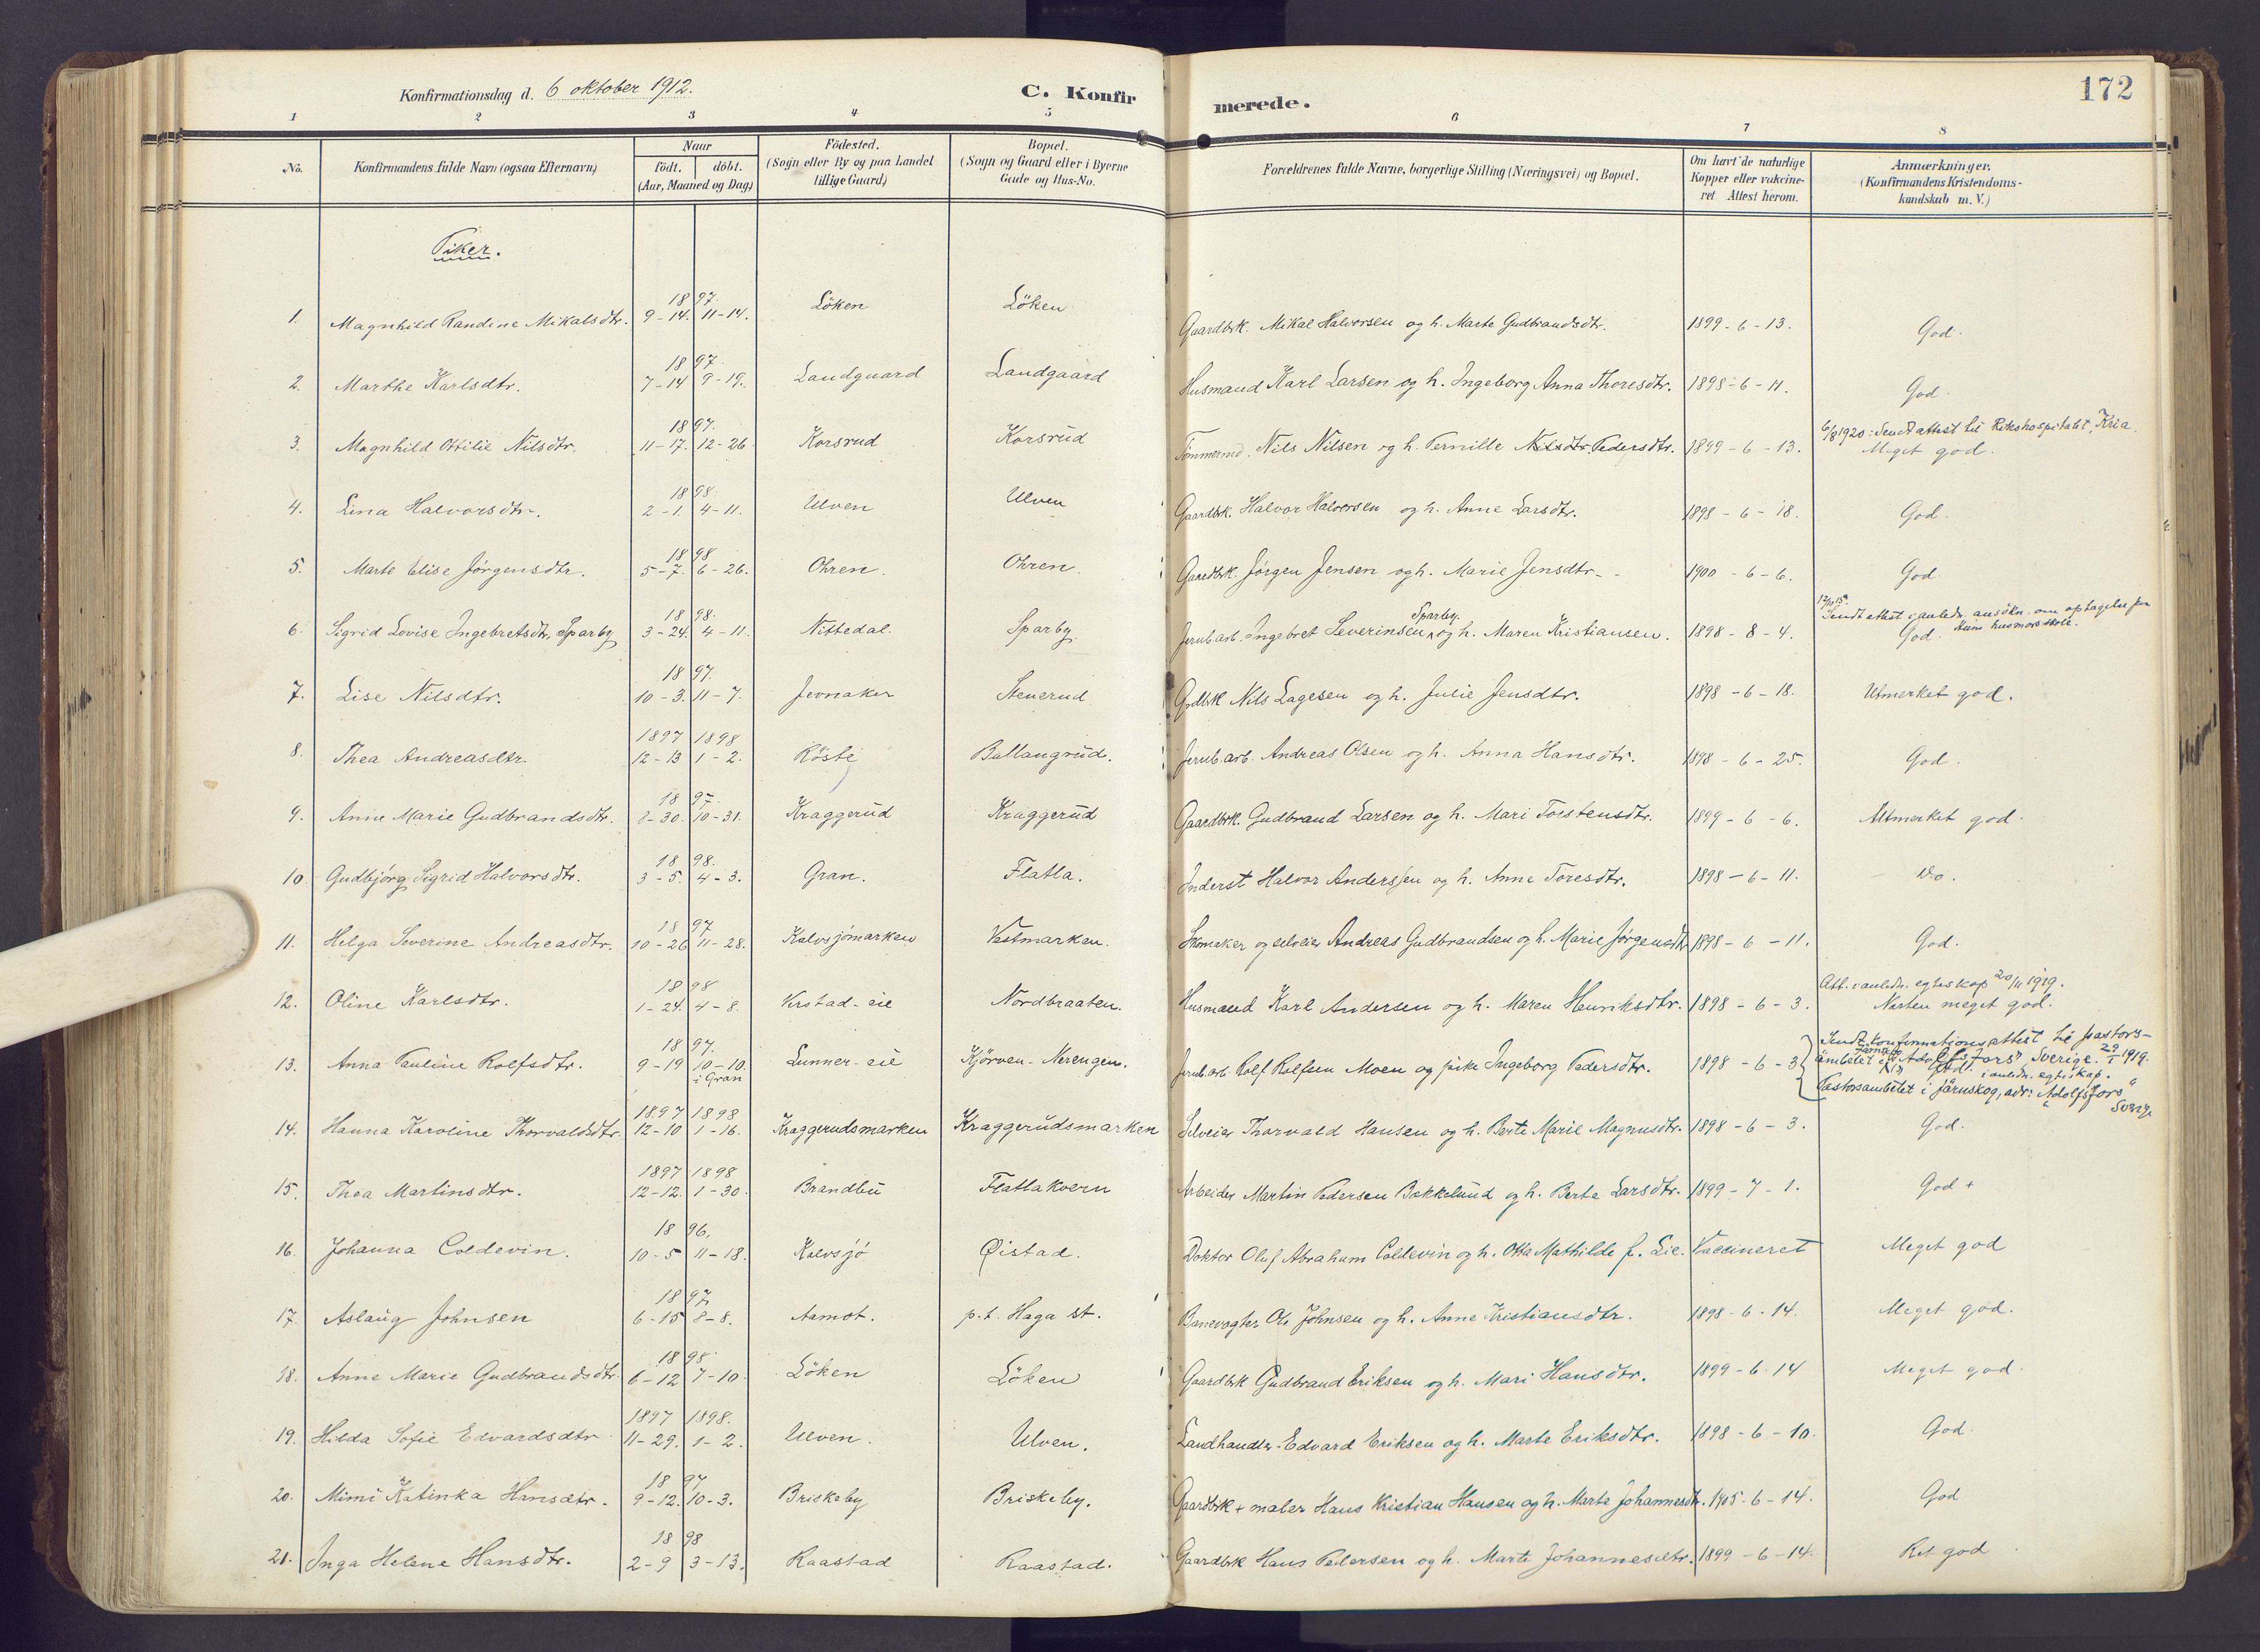 172
Konfirmationsdag d. 6 oktober 1912.
C. Konfir merede.
1 2 3 4 5 6 7 8
No. Konfirmandens fulde Navn (ogsaa Efternavn) Naar födt. döbt. (Aar, Maaned og Dag) Födested. (Sogn eller By og paa Landet tillige Gaard) Bopæl. (Sogn og Gaard eller i Byerne Gade og Hus-No. Forældrenes fulde Navne, borgerlige Stilling (Næringsvei) og Bopæl. Om havt de naturlige Kopper eller vakcineret Attest herom. Anmærkninger. (Konfirmandens Kristendomskundskab m. V.)
Piker.
1. Magnhild Randine Mikalsdtr. 1897. 9-14. 11-14. Löken Löken Gaardbrk. Mikal Halvorsen og h. Marte Gudbrandsdtr. 1899-6-13. God.
2. Marthe Karlsdtr. 1897. 7-14 9-19. Landgaard Landgaard Husmand Karl Larsen og h. Ingeborg Anna Thoresdtr. 1898-6-11. God.
3. Magnhild Ottilie Nilsdtr. 1897. 11-17. 12-26. Korsrud Korsrud Tömmermd. Nils Nilsen og h. Pernille Nilsdtr. Pedersdtr. 1899-6-13. 6/8 1920: Sendt attest til Rikshospitalet, Kria. Meget god.
4. Lina Halvorsdtr. 1898. 2-1. 4-11. Ulven Ulven Gaardbk. Halvor Halvorsen og h. Anne Larsdtr. 1898-6-18. God.
5. Marte Elise Jörgensdtr. 1898 5-7. 6-26. Ohren. Ohren. Gaardbrk. Jörgen Jensen og h. Marie Jensdtr. 1900-6-6. God.
6. Sigrid Lovise Ingebretsdtr, Sparby 1898. 3-24. 4-11. Nittedal. Sparby Jernb.arb. Ingebret Severinsen Sparby og h. Maren Kristiansen. 1898-8-4. 12/10 15. Sendt attest i anledn. ansökn. om optagelse paa husmorskole. God.
7. Lise Nilsdtr. 1897. 10-3. 11-7. Jevnaker Stenerud Grdbrk Nils Lagesen og h. Julie Jensdtr. 1898-6-18. Utmerket god.
8. Thea Andreasdtr. 1897 1898 12-13 1-2. Röste Ballangrud. Jernb.arb. Andreas Olsen og h. Anna Hansdtr. 1898-6-25. God.
9. Anne Marie Gudbrandsdtr. 1897. 8-30. 10-31. Kraggerud Kraggerud Gaardbrk. Gudbrand Larsen og h. Mari Torstensdtr. 1899-6-6. Utmerket god.
10. Gudbjörg Sigrid Halvorsdtr. 1898. 3-5. 4-3. Gran. Flatla. Inderst Halvor Anderssen og h. Anne Toresdtr. 1898-6-11. Do.
11. Helga Severine Andreasdtr. 1897 10-26 11-28. Kalvsjömarken Vestmarken. Skomaker og selveier Andreas Gudbrandsen og h. Marie Jörgensdtr 1898-6-11. God.
12. Oline Karlsdtr. 1898 1-24. 4-8. Verstad-eie Nordbraaten. Husmand Karl Andersen og h. Maren Henriksdtr. 1898-6-3. Att. i anledn. egteskap 20/11 1919. Næsten meget god.
13. Anna Pauline Rolfsdtr. 1897. 9-19 10-10. i Gran Lunner-eie Kjörven-Nerengen. Jernb.arb. Rolf Rolfsen Moen og pike Ingeborg Pedersdtr. 1898-6-3 Sendt konfirmationsattest til pastorsämbetet i Adolfs Fors, Sverige. 29/1 1919. God. i anledn. egteskap. Pastorsambetet i Järnskog, adr: "Adolfsfors" Sverige
14. Hanna Karoline Thorvaldsdtr. 1897 1898 12-10 1-16. Kraggerudsmarken Kraggerudsmarken Selveier Thorvald Hansen og h. Berte Marie Magnusdtr. 1898-6-3. God.
15. Thea Martinsdtr. 1897 1898 12-12. 1-30. Brandbu Flatlakvern Arbeider Martin Pedersen Bakkelund og h. Berte Larsdtr. 1899-7-1. God +
16. Johanna Coldevin. 1896. 10-5 11-18. Kalvsjö Øistad. Doktor Oluf Abraham Coldevin og h. Otta Mathilde f. Lie. Vaccineret Meget god
17. Aslaug Johnsen 1897. 6-15 8-8. Aamot. p.t. Haga st. Banevogter Ole Johnsen og h. Anne Kristiansdtr. 1898-6-14. Meget god.
18. Anne Marie Gudbrandsdtr. 1898. 6-12 7-10. Löken Löken Gaardbrk Gudbrand Eriksen og h. Mari Hansdtr. 1899-6-14 Meget god.
19. Hilda Sofie Edvardsdtr 1897 1898. 11-29. 1-2. Ulven. Ulven. Landhandler Edvard Eriksen og h. Marte Eriksdtr. 1898-6-10. God.
20. Mimi Katinka Hansdtr. 1897 9-12. 10-3. Briskeby Briskeby. Gaardbrk + maler Hans Kristian Hansen og h. Marte Johannesdtr. 1905-6-14. God
21. Inga Helene Hansdtr. 1898 2-9 3-13. Raastad Raastad. Gaardbrk Hans Pedersen og h. Marte Johannesdtr. 1899-6-14. Ret god